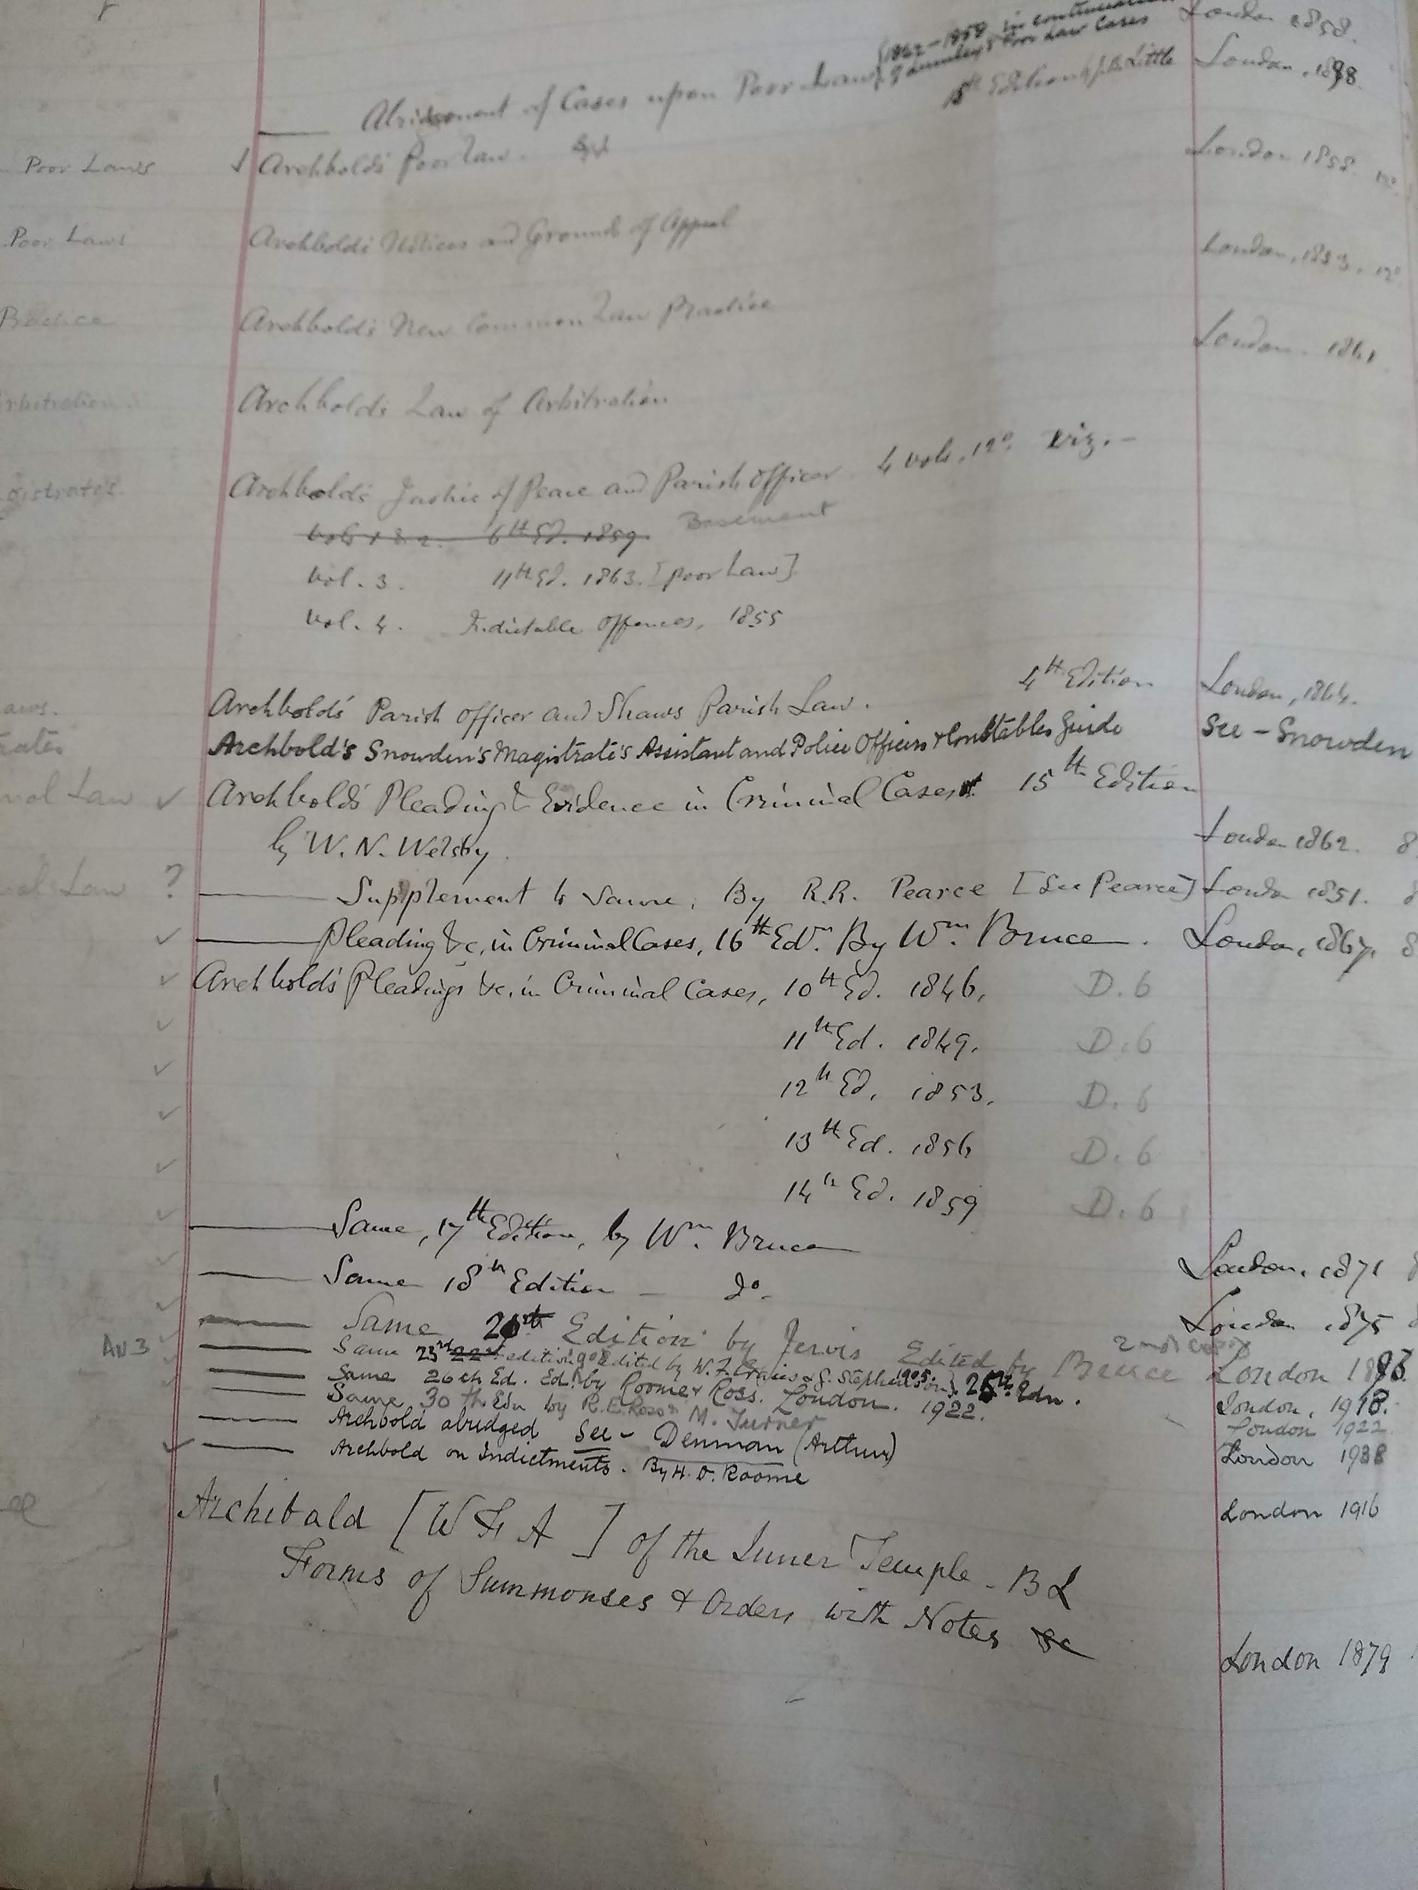 {1842-1858 in continuation London 1858.
Abridgment of Cases upon Poor Law of Lumley's Poor Law Cases
15th Edition by J.B. Little London, 1898.
Poor Laws Archbold's Poor Law. London 1858. 12o
Poor Laws Archbold's Notices and Grounds of Appeal London, 1853. 12o
Practice Archbold's New Common Law Practice London. 1861
Arbitration Archbold's Law of Arbitration
gistrates Archbold's Justice of Peace and Parish Officer 4 vols. 12o. viz.-
Vols 1 & 2. 6th Ed. 1859. Basement
Vol. 3. 11th Ed. 1863. [Poor Law]
Vol. 4. Indictable Offences, 1855
aws. Archbold's Parish Officer and Shaws Parish Law. 4th Edition London, 1864.
rates Archbold's Snowden's Magistrate's Assistant and Police Officers & Constables Guide See - Snowden
nal Law ✓ Archbold's Pleading & Evidence in Criminal Cases 15th Edition
by W. N. Welsby. London 1862. 8
nal Law ? Supplement to Same, By R.R. Pearce [See Pearce] London 1851. 8
✓ Pleading &c, in Criminal Cases, 16th Edn. By Wm. Bruce. London, 1867. 8
✓ Archbold's Pleadings &c, in Criminal Cases, 10th Ed. 1846, D. 6
✓ 11th Ed. 1849. D. 6
✓ 12th Ed. 1853. D. 6
✓ 13th Ed. 1856 D. 6
✓ 14th Ed. 1859 D. 6
✓ Same, 17th Edition, by Wm. Bruce London. 1871 8
✓ Same 18th Edition - Do. London 1875
✓ Same Edition by Jervis Edited by Bruce 2nd copy London
AN 3 Same 23rd 22nd edition Edited by W.F. Craies & G. Stephenson 1905 25th Edn. London, 1918.
Same 26th Ed. Ed. by Roome & Ross. London. 1922. London 1922
Same 30th Edn by R.E. Ross & M. Turner London 1938
Archbold abridged See - Denman (Arthur)
✓ Archbold on Indictments. By H. D. Roome London 1916
Archibald [W F A ] of the Inner Temple - B L
Forms of Summonses & Orders with Notes &c London 1879